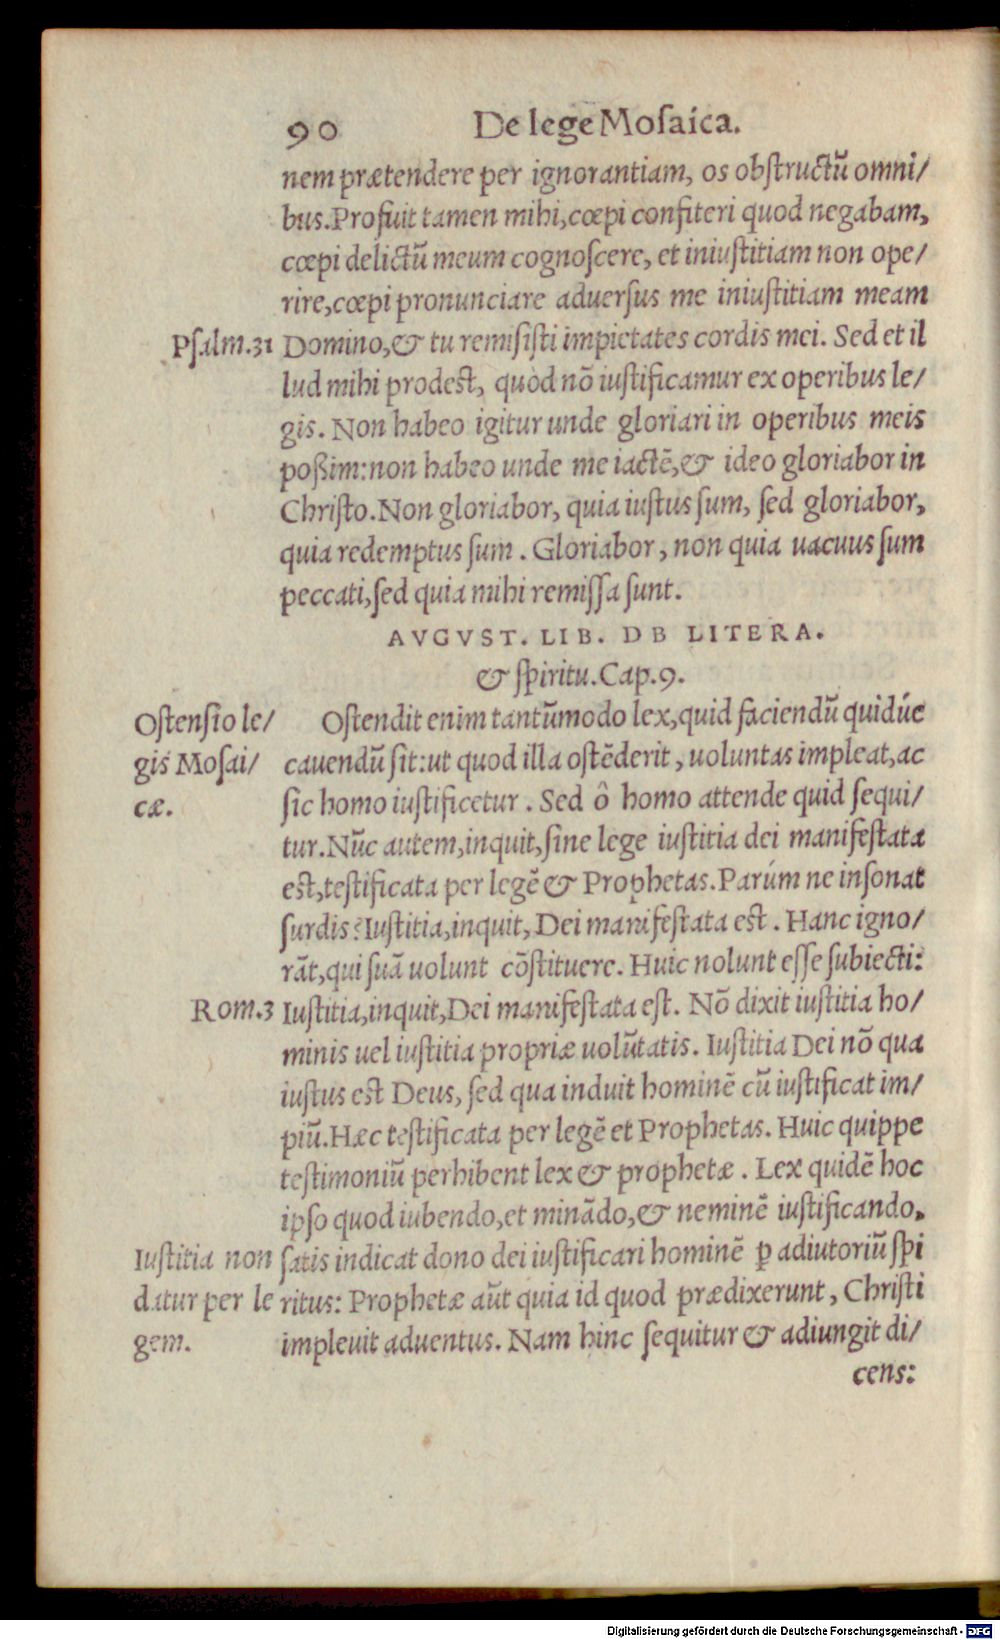 90 De lege Mosaica.
nem prætendere per ignorantiam, os obstructũ omni/
bus. Profuit tamen mihi, cœpi confiteri quod negabam,
cœpi delictũ meum cognoscere, et iniustitiam non ope/
rire, cœpi pronunciare aduersus me iniustitiam meam
Psalm.31 Domino, & tu remisisti impietates cordis mei. Sed et il
lud mihi prodest, quòd nõ iustificamur ex operibus le/
gis. Non habeo igitur unde gloriari in operibus meis
poßim: non habeo unde me iactẽ, & ideo gloriabor in
Christo. Non gloriabor, quia iustus sum, sed gloriabor,
quia redemptus sum. Gloriabor, non quia uacuus sum
peccati, sed quia mihi remissa sunt.
AVGVST. LIB. DB LITERA.
& spiritu. Cap.9.
Ostensio le/
gis Mosai/
cæ.
Ostendit enim tantũmodo lex, quid faciendũ quidúe
cauendũ sit: ut quod illa ostẽderit, uoluntas impleat, ac
sic homo iustificetur. Sed ô homo attende quid sequi/
tur. Nũc autem, inquit, sine lege iustitia dei manifestata
est, testificata per legẽ & Prophetas. Parúm ne insonat
surdis? Iustitia, inquit, Dei manifestata est. Hanc igno/
rãt, qui suã uolunt cõstituere. Huic nolunt esse subiecti:
Rom.3 Iustitia, inquit, Dei manifestata est. Nõ dixit iustitia ho/
minis uel iustitia propriæ uolũtatis. Iustitia Dei nõ qua
iustus est Deus, sed qua induit hominẽ cũ iustificat im/
piũ. Hæc testificata per legẽ et Prophetas. Huic quippe
testimoniũ perhibent lex & prophetæ. Lex quidẽ hoc
ipso quod iubendo, et minãdo, & neminẽ iustificando,
Iustitia non
datur per le
gem.
satis indicat dono dei iustificari hominẽ ꝑ adiutoriũ spi
ritus: Prophetæ aũt quia id quod prædixerunt, Christi
impleuit aduentus. Nam hinc sequitur & adiungit di/
cens:
Digitalisierung gefördert durch die Deutsche Forschungsgemeinschaft - DFG